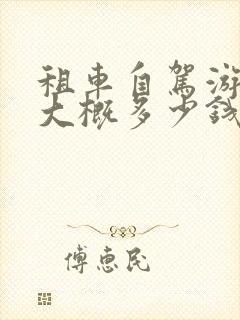 租車自駕游
大概多少錢
傅惠民